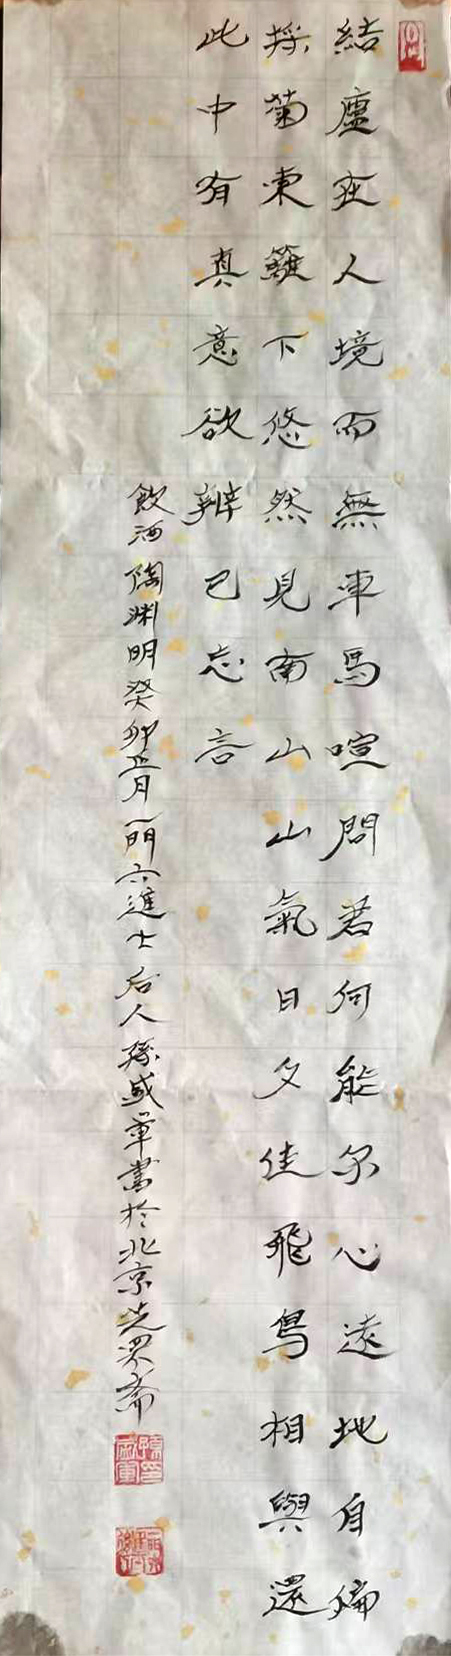 結廬在人境而無車馬喧問君何能尔心遠地自偏
採菊東籬下悠然見南山山氣日夕佳飛鳥相與還
此中有真意欲辨已忘言
飲酒陶渊明癸卯正月一門六進士后人孫盛章書於北京